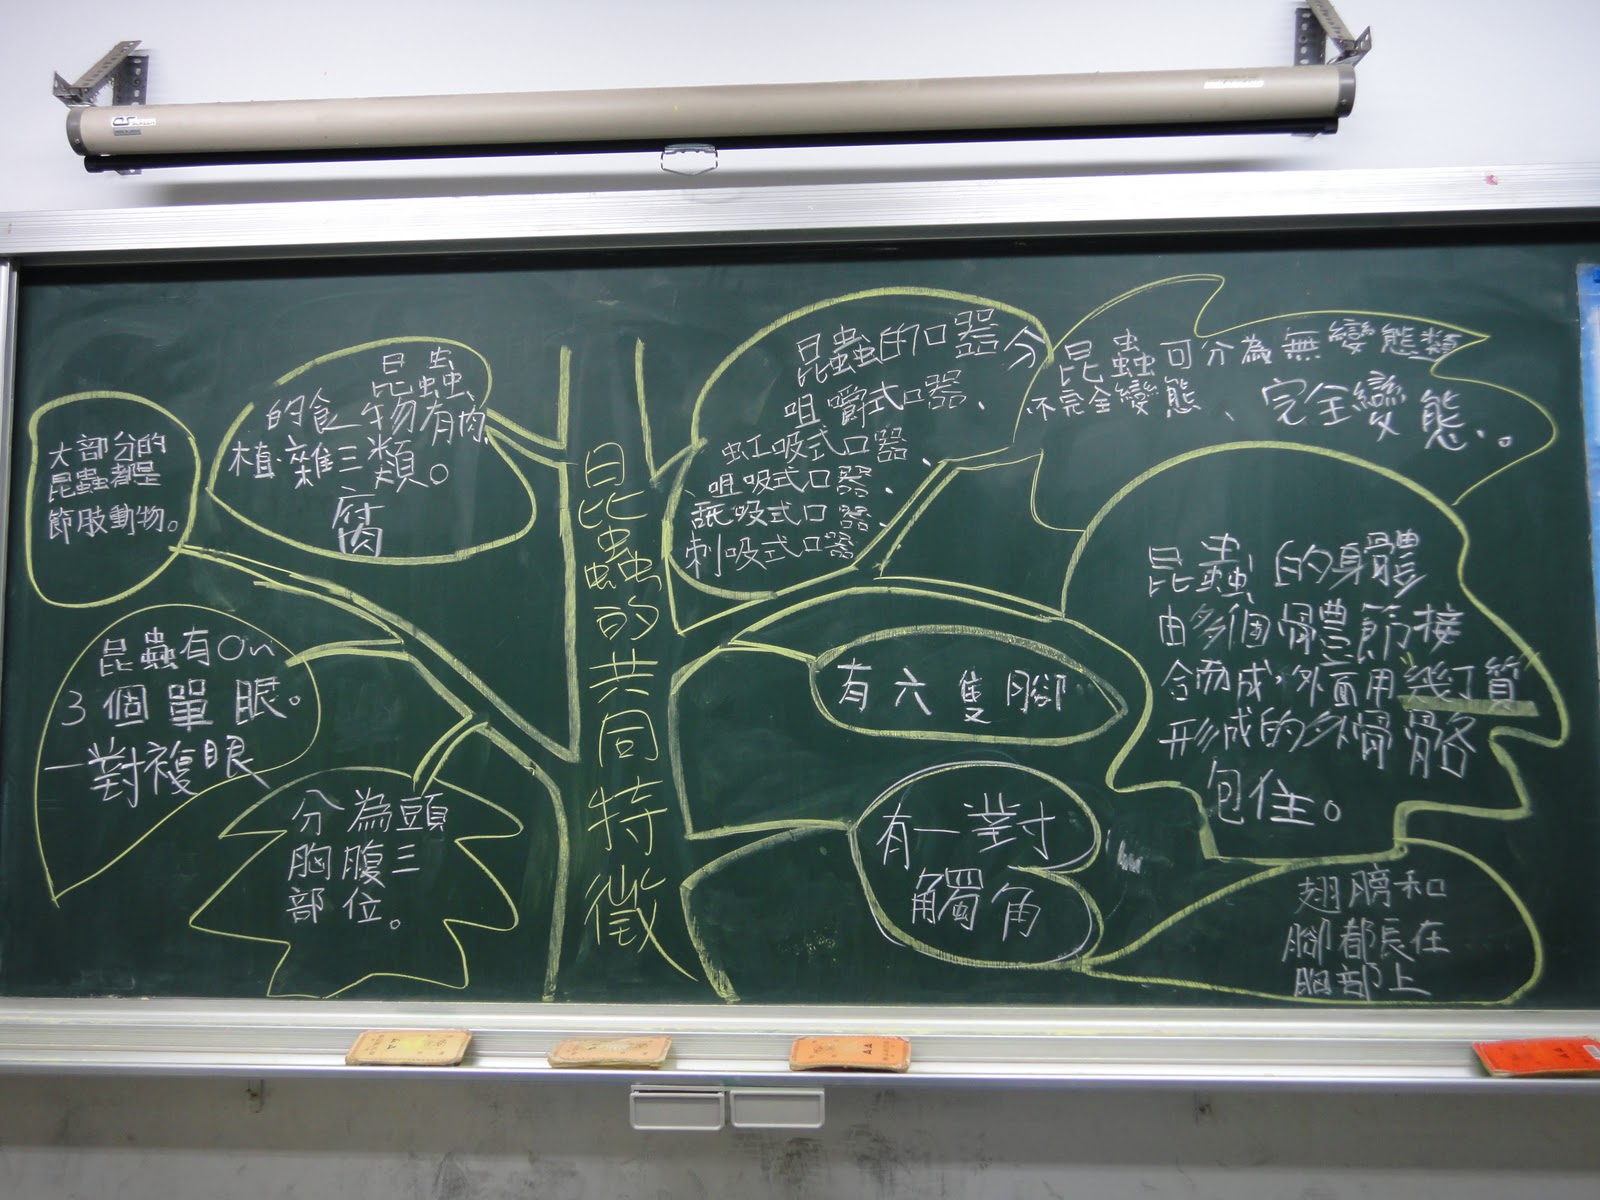 昆蟲的共同特徵
大部分的
昆蟲都是
節肢動物。
昆蟲
的食物有肉、
植、雜三類。
腐
肉
昆蟲有0~
3個單眼。
一對複眼
分為頭
胸腹三
部位。
昆蟲的口器分
咀嚼式口器、
虹吸式口器、
咀吸式口器、
舐吸式口器、
刺吸式口器
昆蟲可分為無變態類
不完全變態、完全變態。
有六隻腳
有一對
觸角
昆蟲的身體
由多個骨體節接
合而成,外面用幾丁質
形成的外骨骼
包住。
翅膀和
腳都長在
胸部上